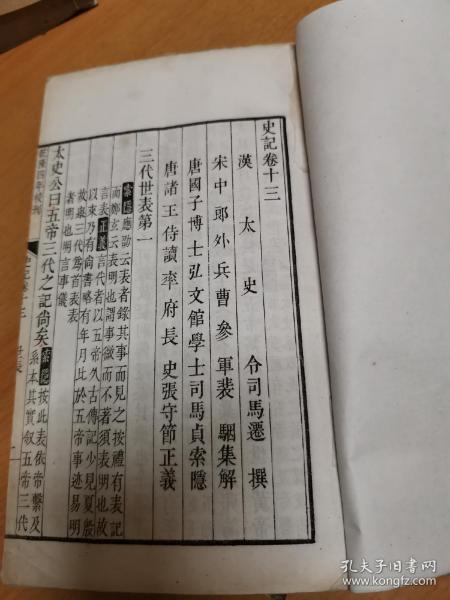 史記卷十三
漢太史令司馬遷撰
宋中郎外兵曹參軍裴駰集解
唐國子博士弘文館學士司馬貞索隱
唐諸王侍讀率府長史張守節正義
三代世表第一
索隱應劭云表者錄其事而見之按禮有表記
而鄭玄云表明也謂事微而不著須表明也故
言表正義言代者以五帝久古傳記少見夏殷
以來乃有尙書略有年月比於五帝事迹易明
故舉三代爲首表表
者明也明言事儀
太史公曰五帝三代之記尙矣索隱按此表依帝繫及
系本其實叙五帝三代
乾隆四年校刊
世表
孔夫子旧书网
www.kongfz.com